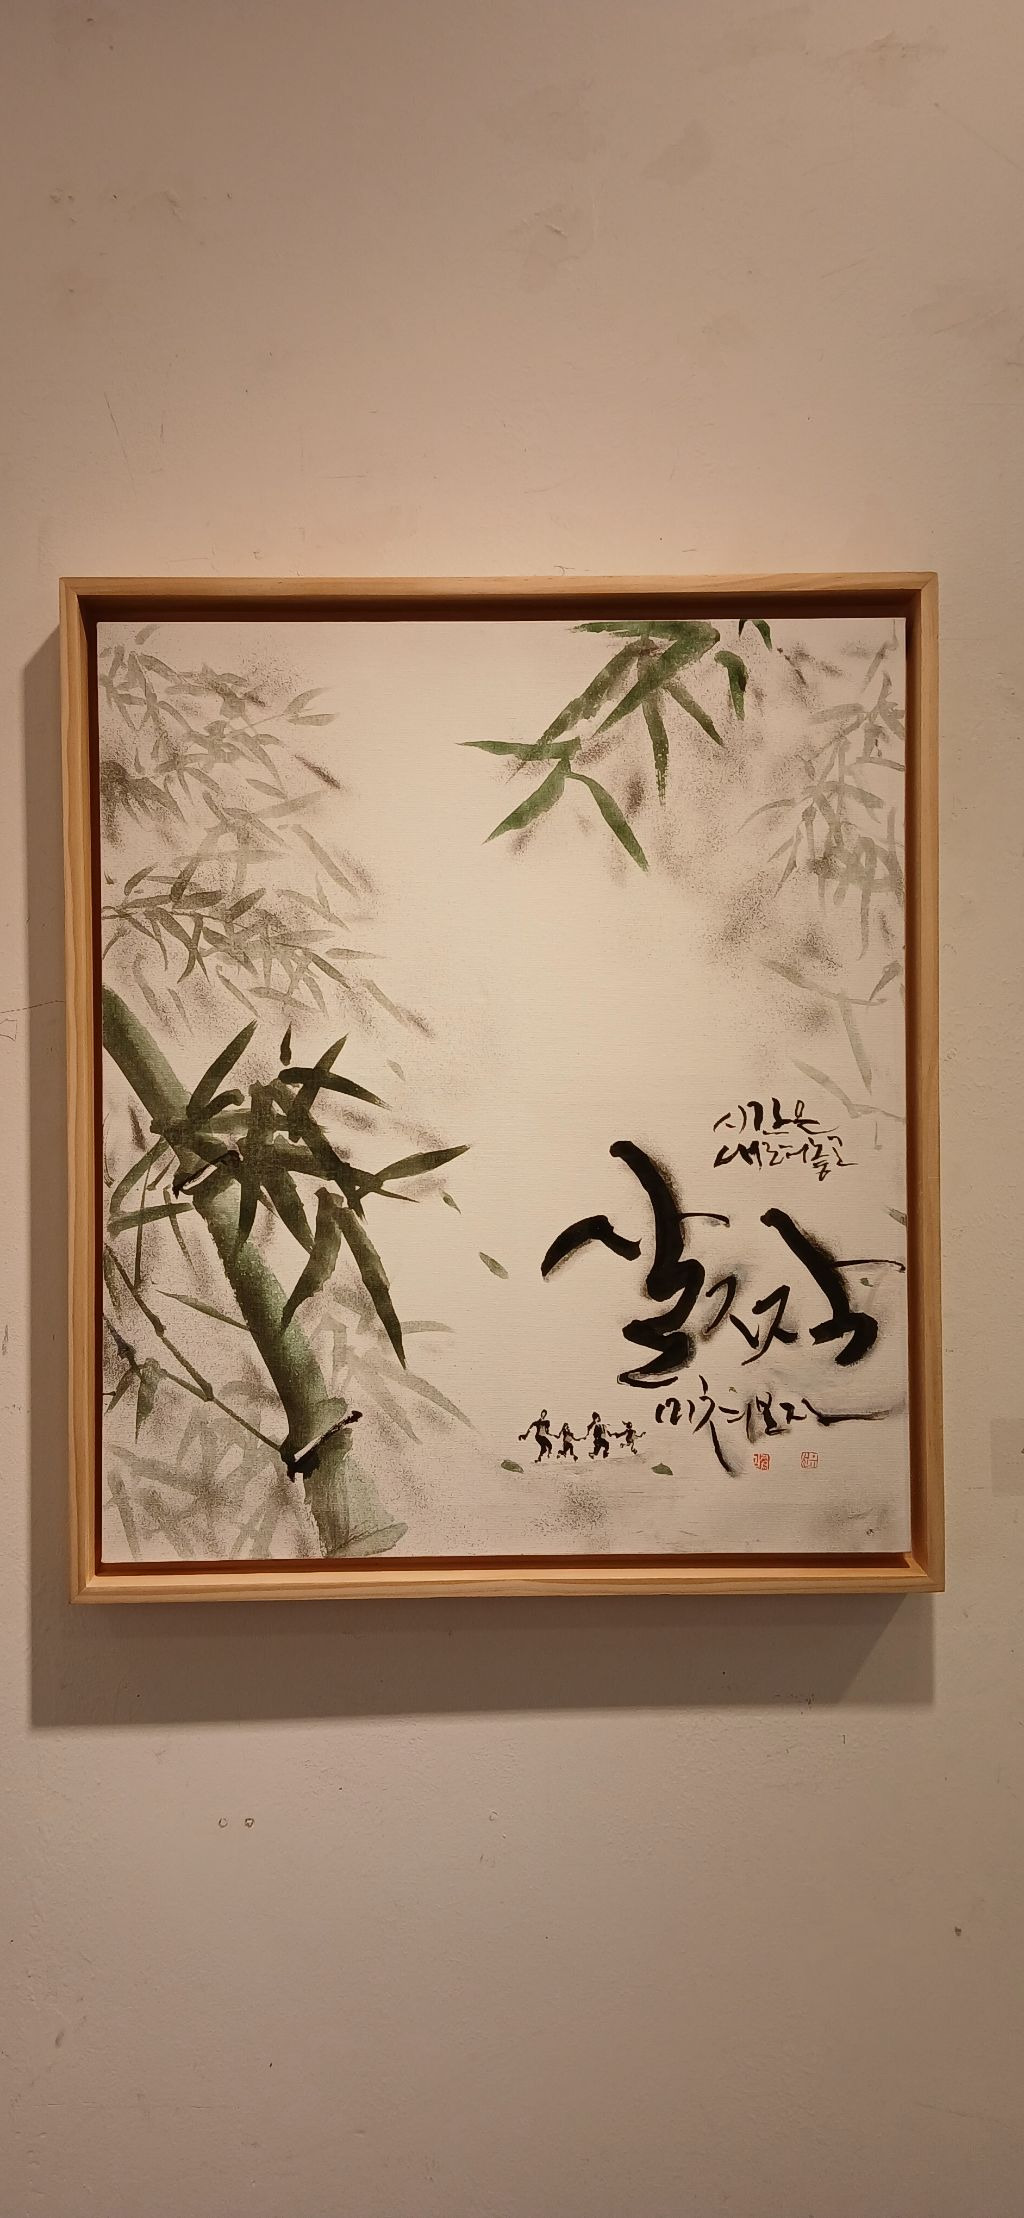 시간은
내려놓고
살짝
미쳐보자